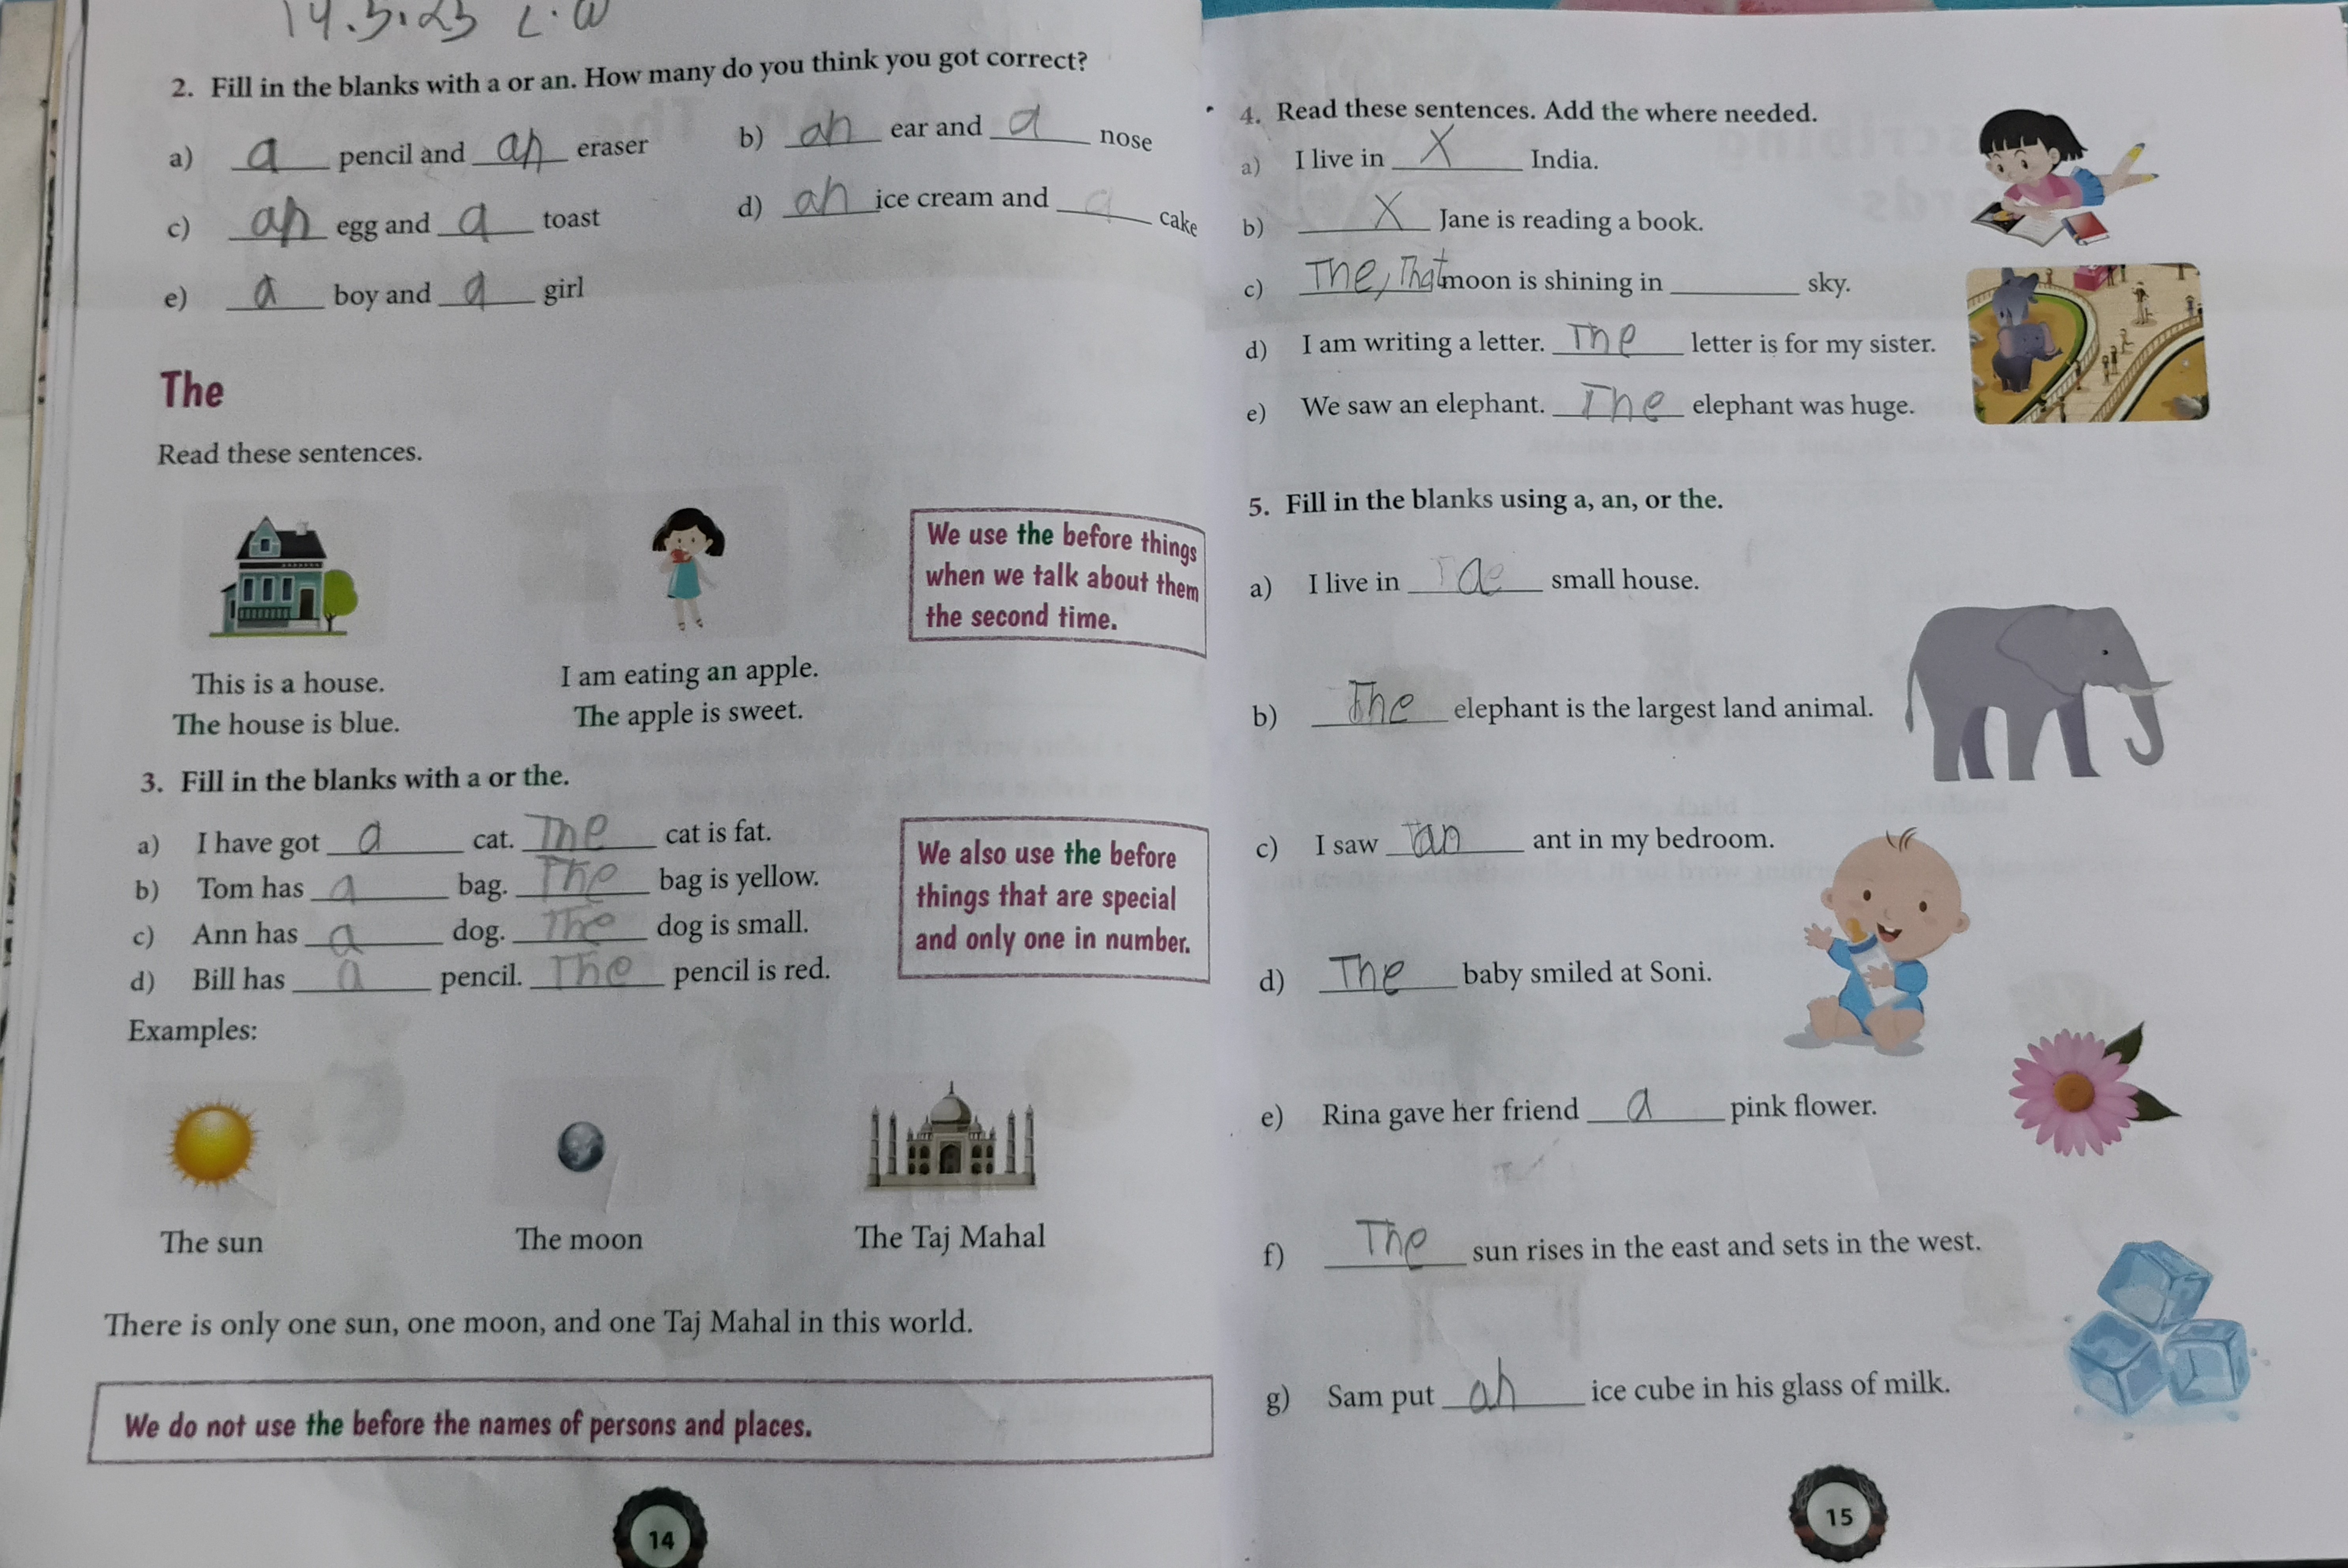 14.5.23 C.W
2. Fill in the blanks with a or an. How many do you think you got correct?
a) a pencil and an eraser
b) an ear and a nose
c) an egg and a toast
d) an ice cream and a cake
e) a boy and a girl
The
Read these sentences.
We use the before things
when we talk about them
the second time.
This is a house.
The house is blue.
I am eating an apple.
The apple is sweet.
3. Fill in the blanks with a or the.
a) I have got a cat. The cat is fat.
b) Tom has a bag. The bag is yellow.
c) Ann has a dog. The dog is small.
d) Bill has a pencil. The pencil is red.
We also use the before
things that are special
and only one in number.
Examples:
The sun
The moon
The Taj Mahal
There is only one sun, one moon, and one Taj Mahal in this world.
We do not use the before the names of persons and places.
14
4. Read these sentences. Add the where needed.
a) I live in X India.
b) X Jane is reading a book.
c) The, That moon is shining in ________ sky.
d) I am writing a letter. The letter is for my sister.
e) We saw an elephant. The elephant was huge.
5. Fill in the blanks using a, an, or the.
a) I live in a small house.
b) The elephant is the largest land animal.
c) I saw an ant in my bedroom.
d) The baby smiled at Soni.
e) Rina gave her friend a pink flower.
f) The sun rises in the east and sets in the west.
g) Sam put an ice cube in his glass of milk.
15